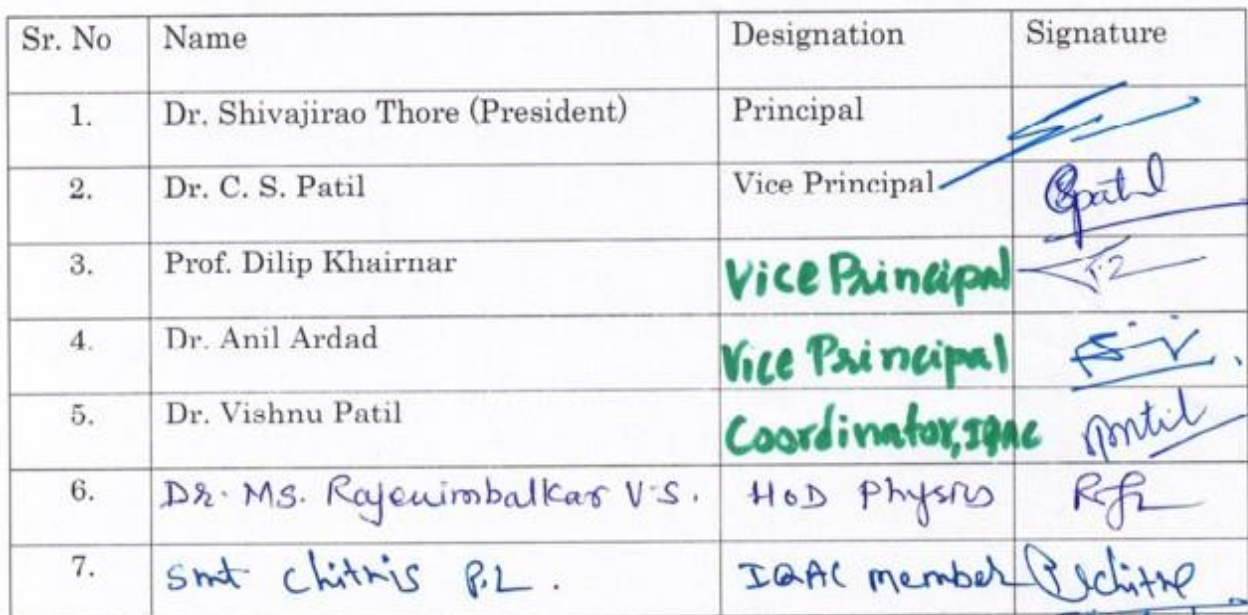 Sr. No Name Designation Signature
1. Dr. Shivajirao Thore (President) Principal
2. Dr. C. S. Patil Vice Principal CSPatil
3. Prof. Dilip Khairnar Vice Principal
4. Dr. Anil Ardad Vice Principal
5. Dr. Vishnu Patil Coordinator, IQAC
6. Dr. Ms. Rajenimbalkar V.S. HoD Physics
7. Smt Chitnis P.L. IQAC member